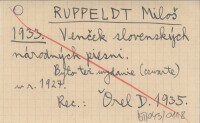 RUPPELDT Miloš
1933. Venček slovenských
národných piesní.
Bylo též vydanie (cvarte)
v r. 1927.
Rec.: Orel D. 1935.